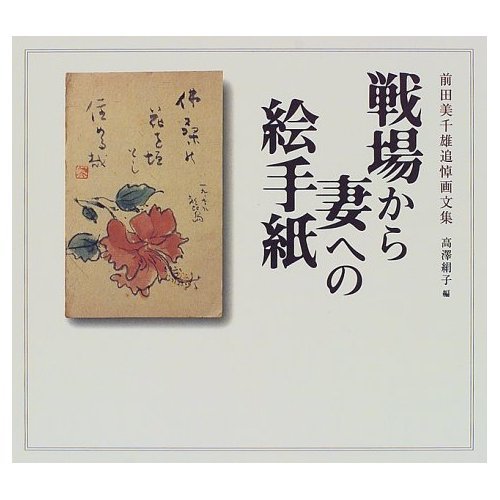 前田美千雄追悼画文集
高澤絹子 編
戦場から
妻への
絵手紙
花を垣